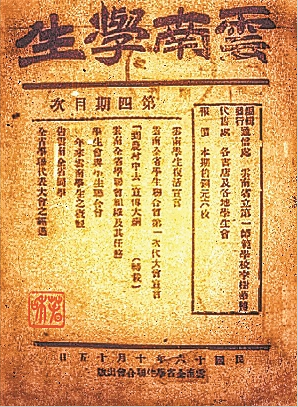 雲南學生
第四期目次
通信處 雲南省立第一師範學校李樹華轉
發行
代售處 各書店及各地學生會
報價 本期售銅元六枚
雲南學生復活宣言
雲南全省學生聯合會第一次代表大會宣言
「到農村中去」宣傳大綱 (轉載)
雲南全省學聯會組織及其任務
學生會與學生聯合會
一年來雲南學生之
告雲南全省同學
全省學聯代表大會之經過
民國十六年十月十五日
雲南全省學生聯合會出版